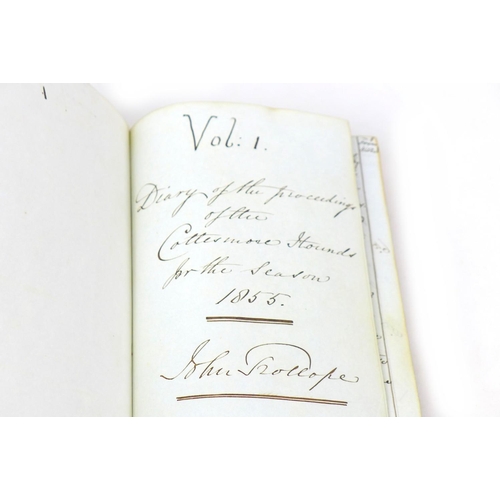 Vol: 1.
Diary of the proceedings
of the
Cottesmore Hounds
for the Season
1855.
John Trollope